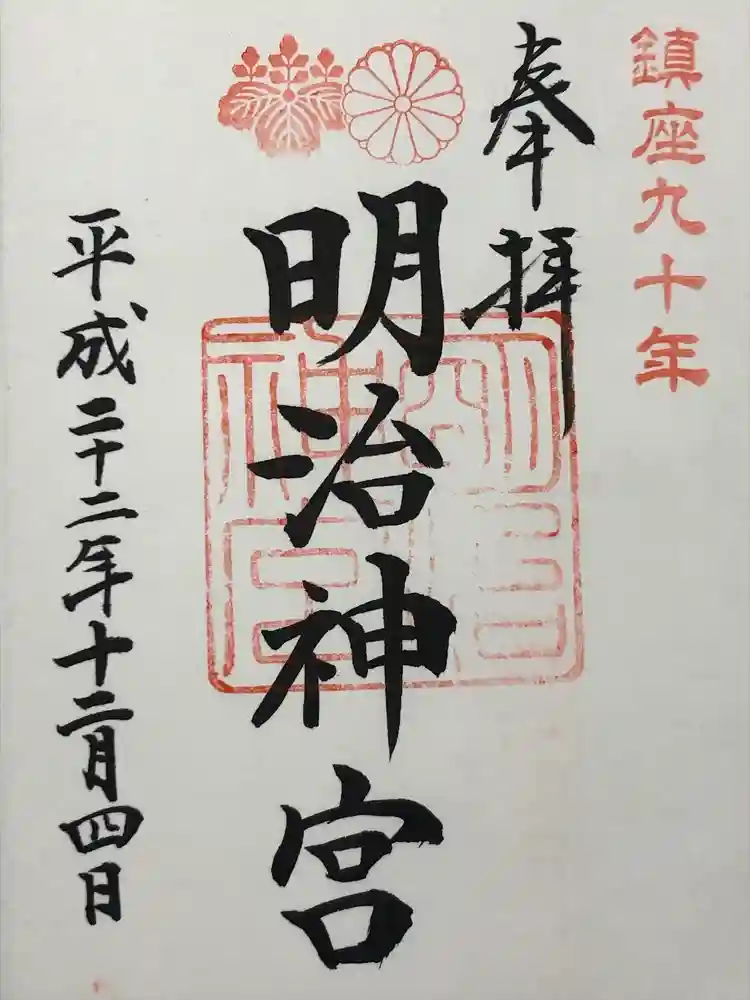 鎮座九十年
奉拝
明治神宮
平成二十二年十二月四日
明治神宮